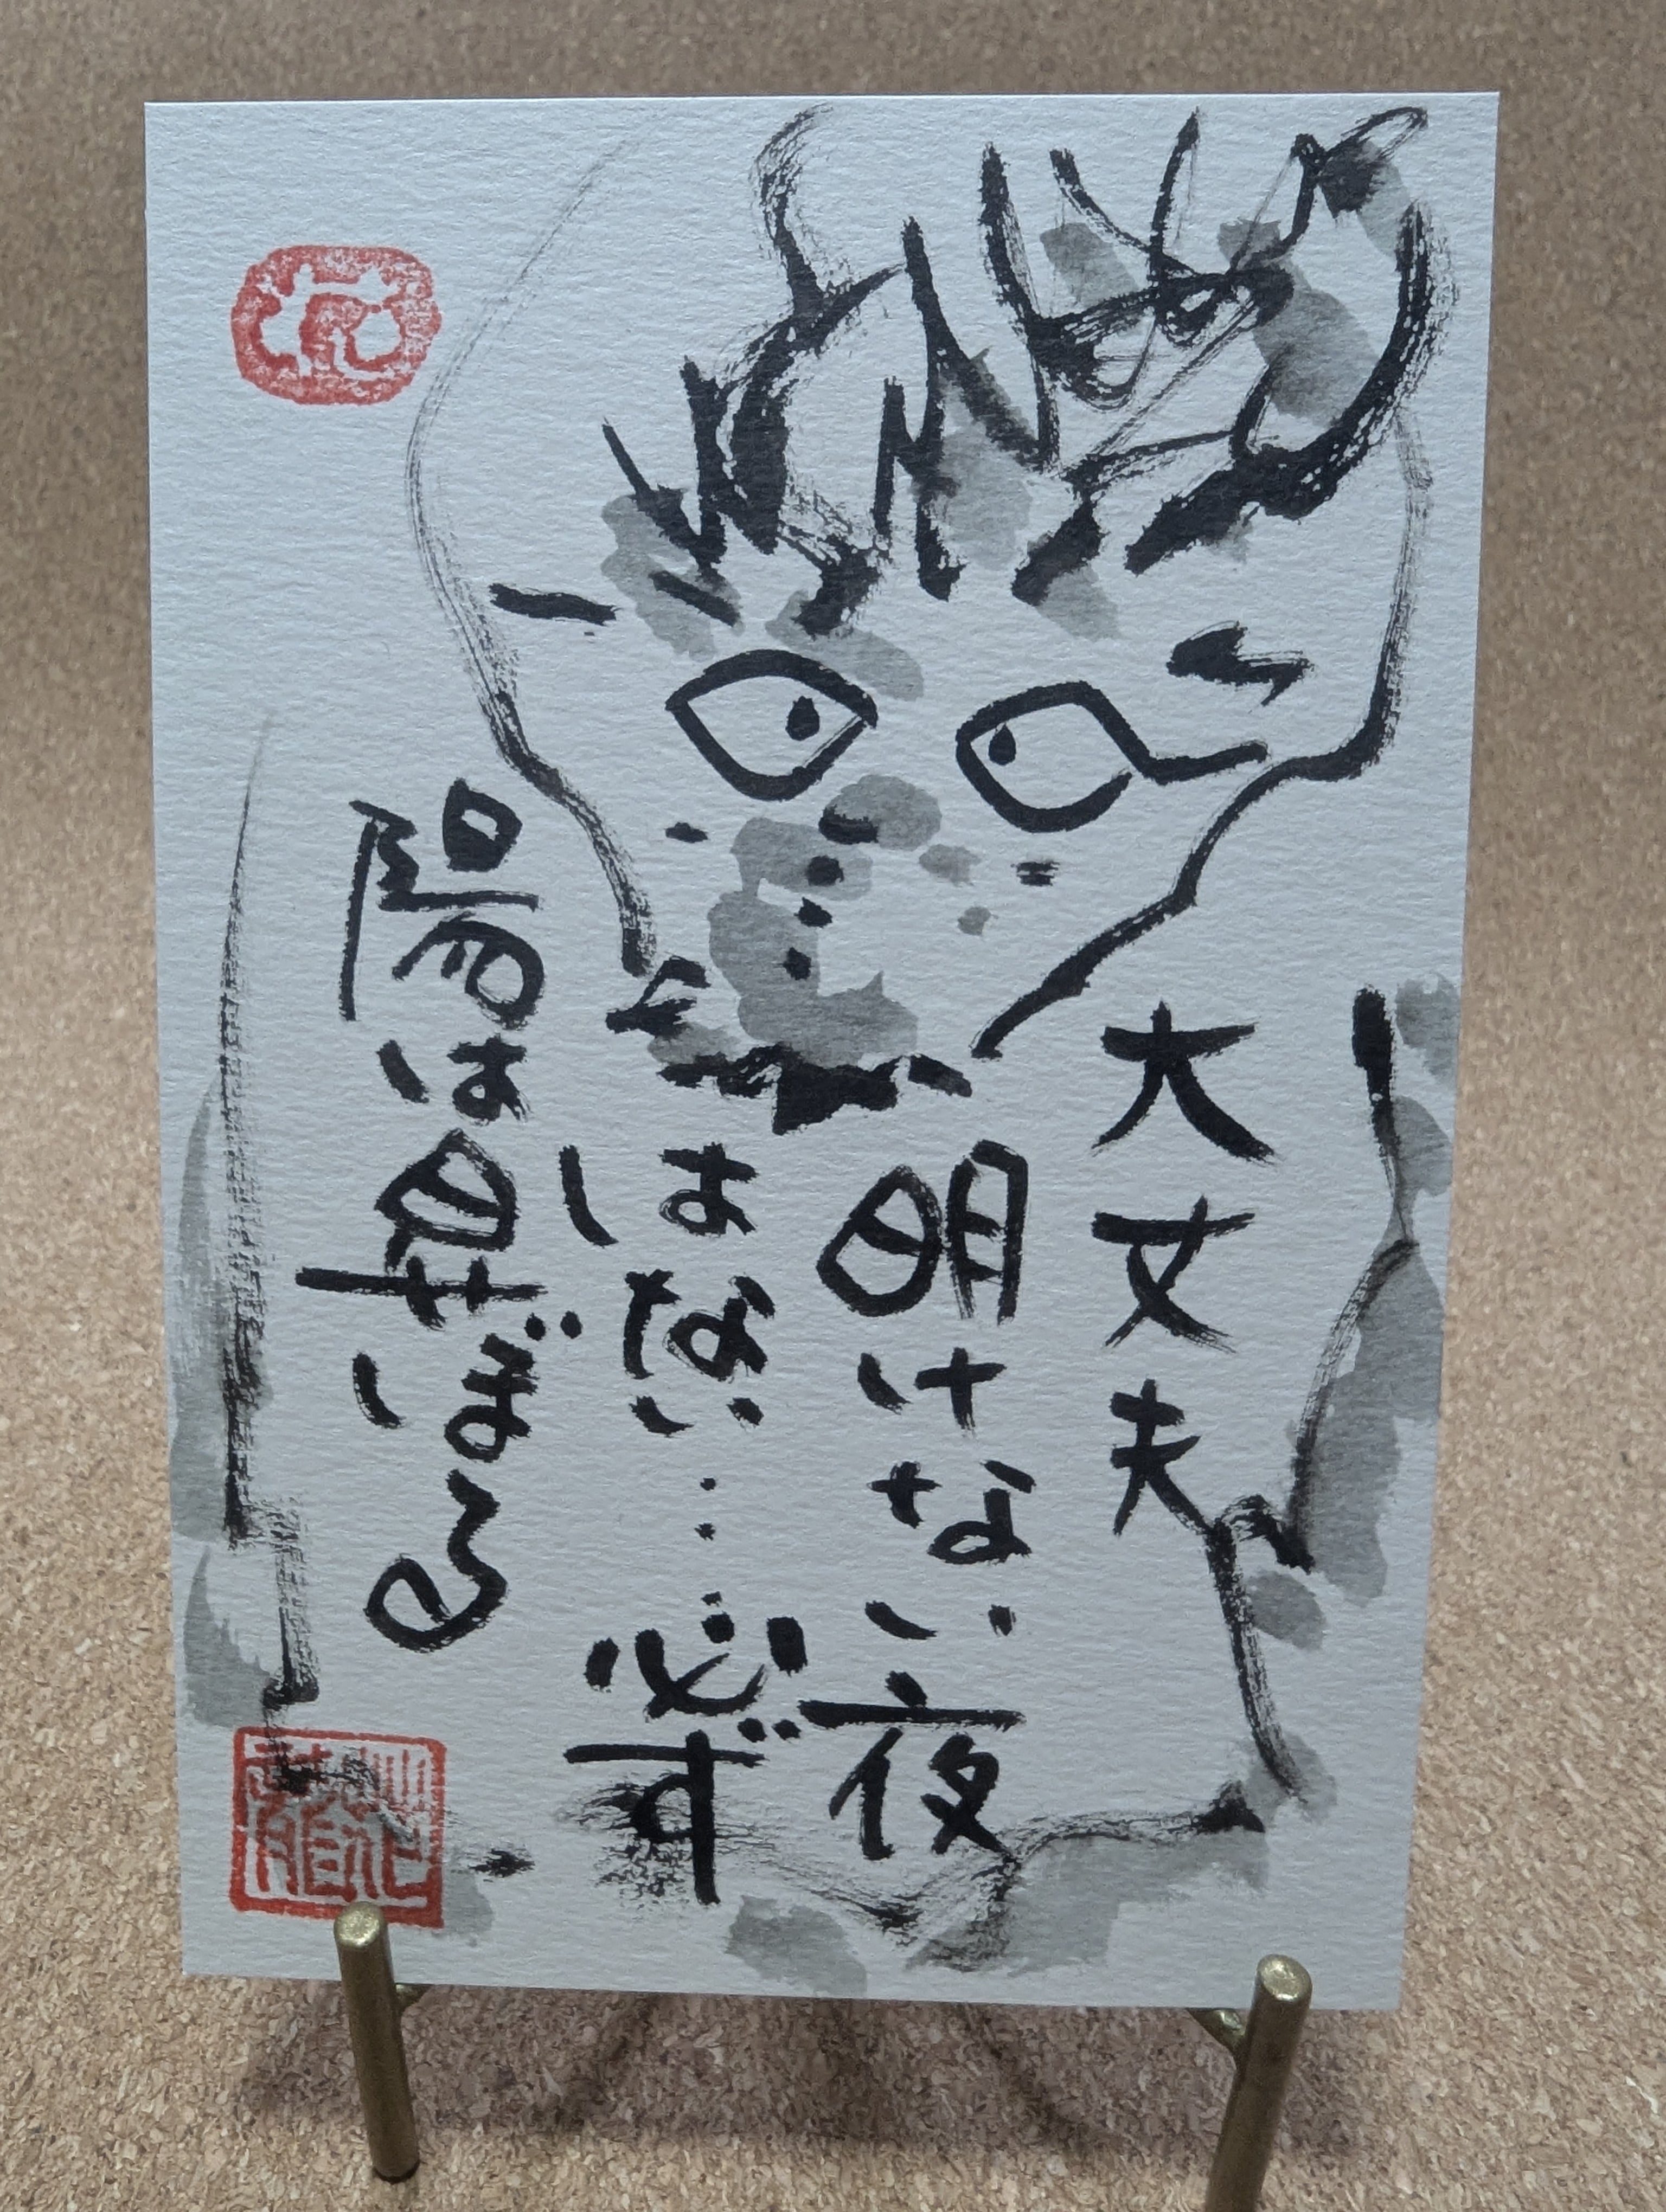 大丈夫
明けない夜
はない…必ず
陽は昇ぼる